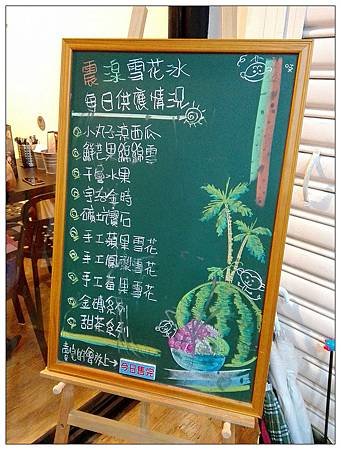 震湶雪花冰
每日供應情況
小丸子凉西瓜
鮮芒果綿綿雪
千層水果
宇治金時
礦坑寶石
手工蘋果雪花
手工鳳梨雪花
手工莓果雪花
金磚系列
甜菜系列
賣完的會放上→
今日售完